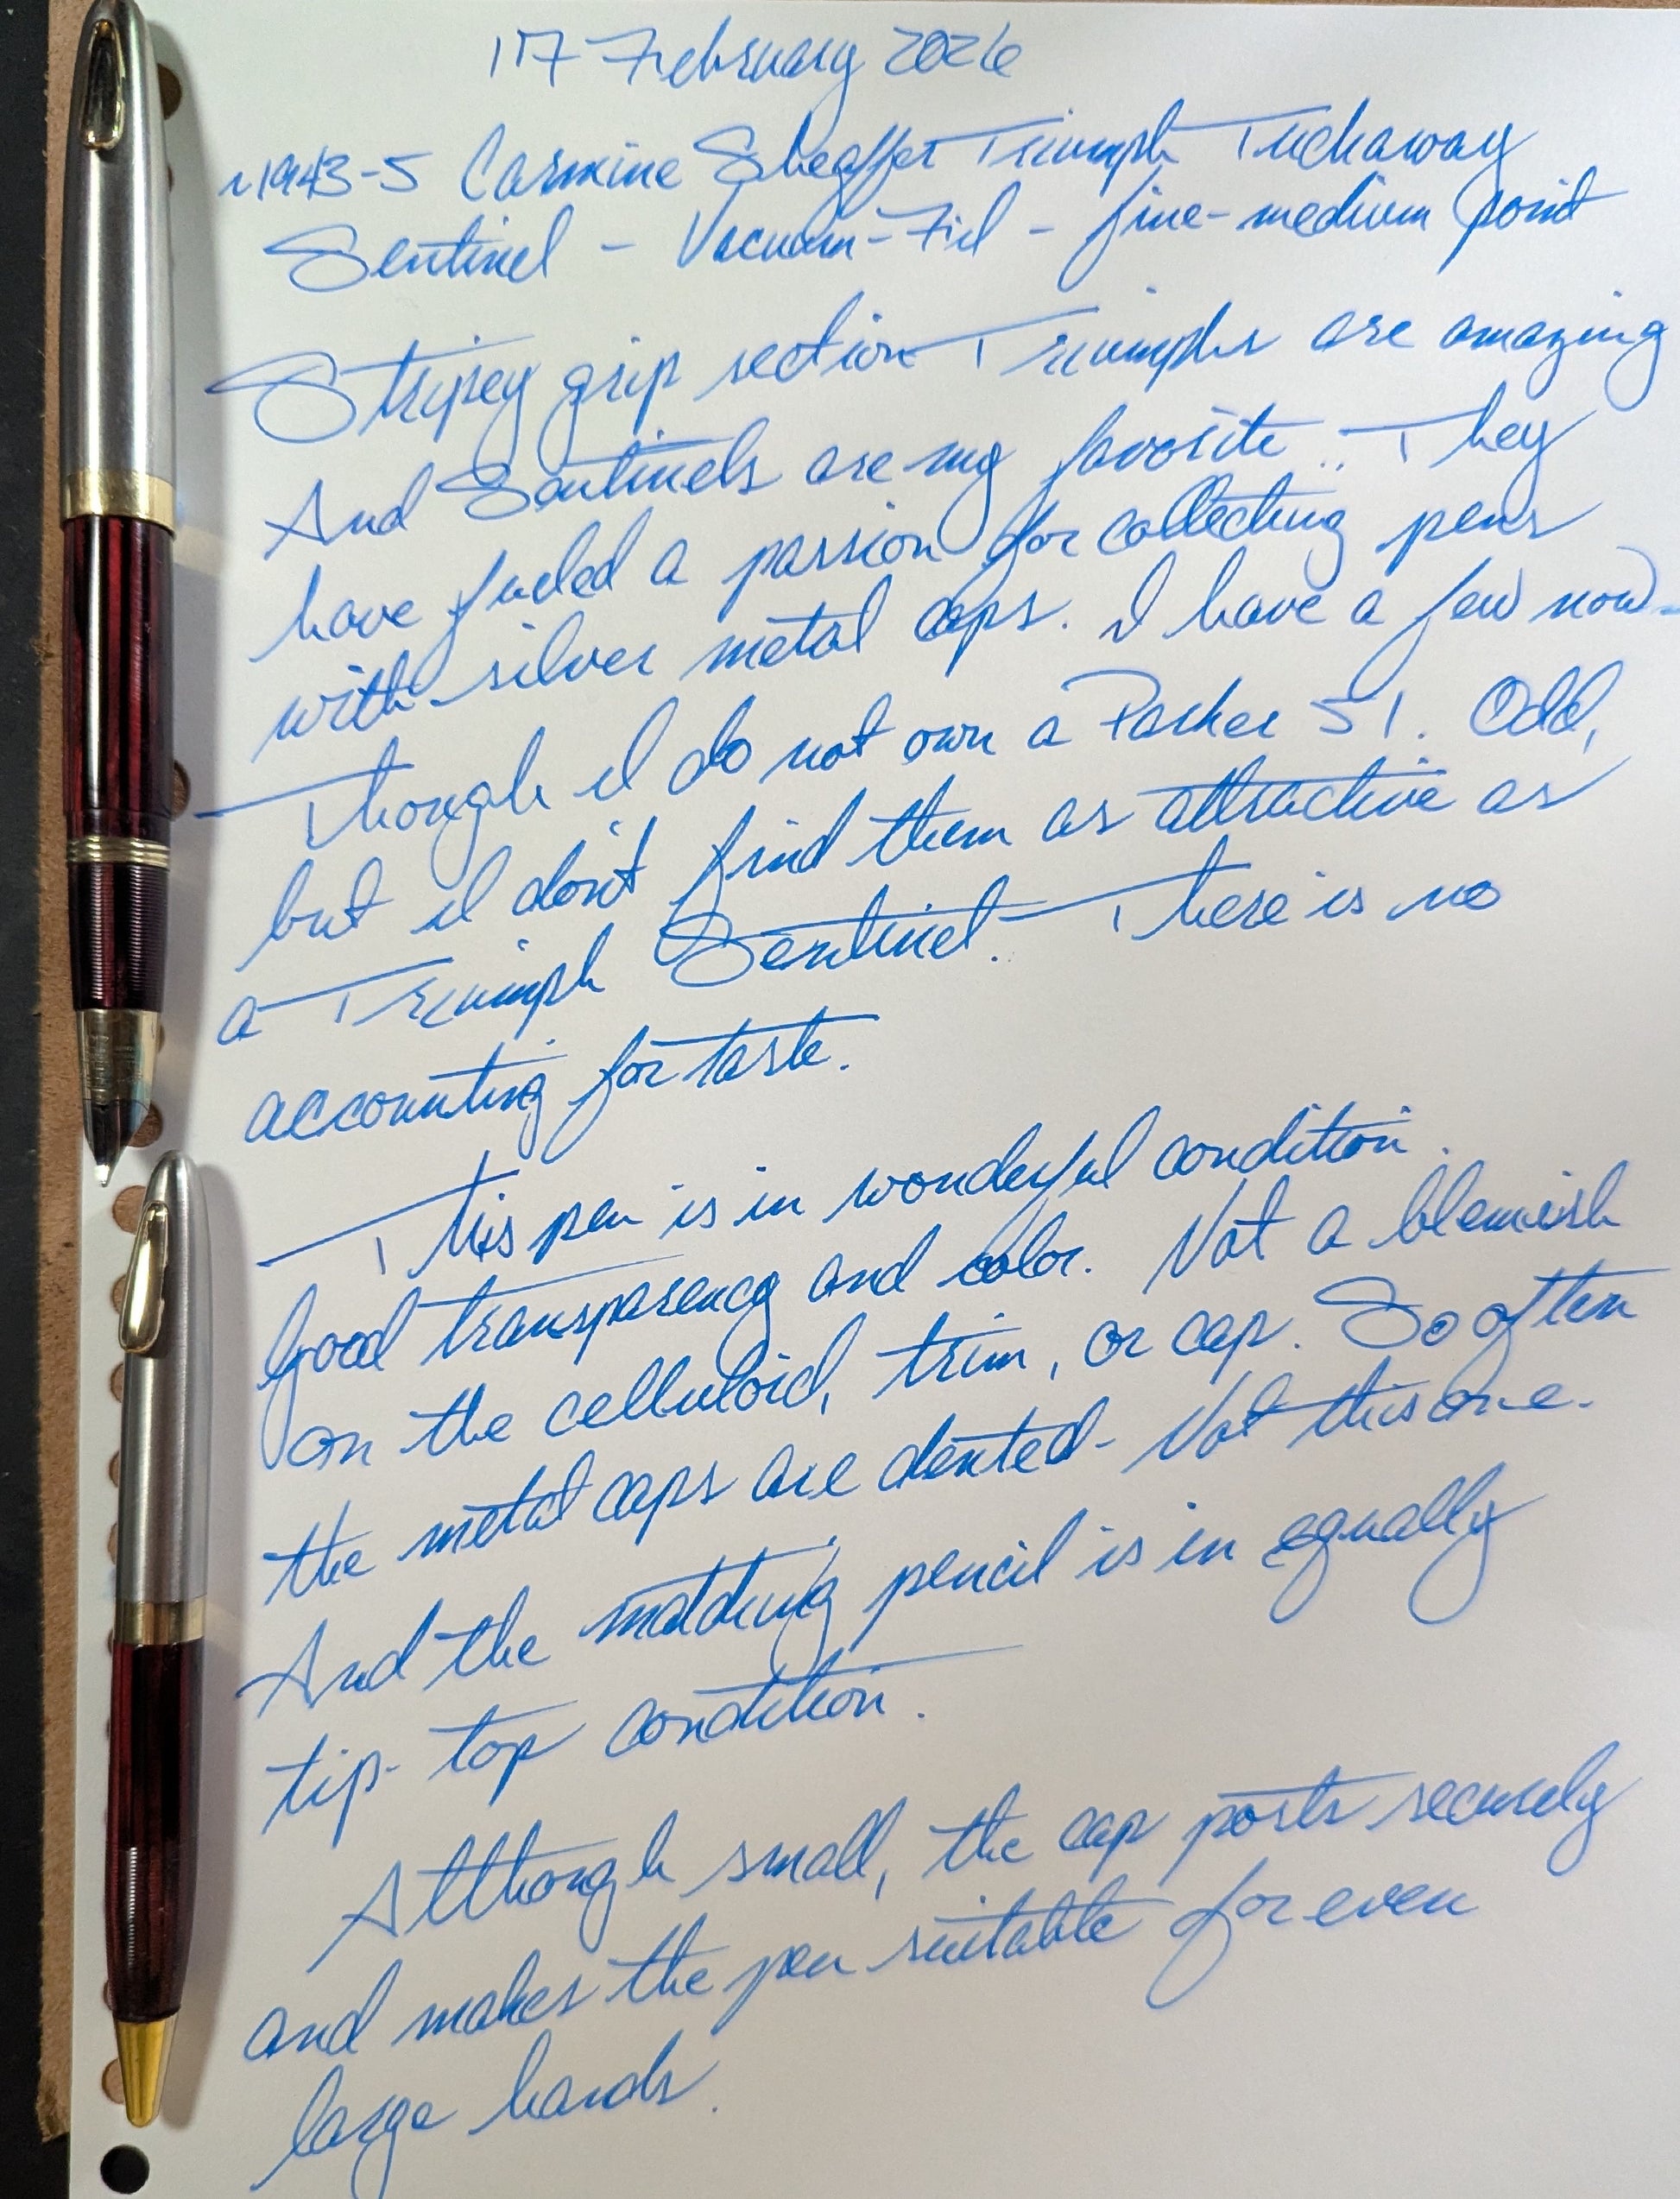 17 February 2026
~1943-5 Carmine Sheaffer Triumph Tuckaway
Sentinel - Vacuum-Fil - fine-medium point
Stripey grip section Triumphs are amazing
And Sentinels are my favorite. They
have fueled a passion for collecting pens
with silver metal caps. I have a few now-
Though I do not own a Parker 51. Odd,
but I don't find them as attractive as
a Triumph Sentinel. There is no
accounting for taste.
This pen is in wonderful condition.
Good transparency and color. Not a blemish
on the celluloid, trim, or cap. So often
the metal caps are dented- Not this one.
And the matching pencil is in equally
tip-top condition.
Although small, the cap posts securely
and makes the pen suitable for even
large hands.